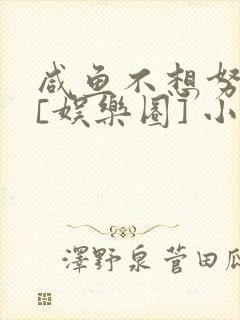 咸鱼不想努
[娱樂圈] 小
澤野泉菅田